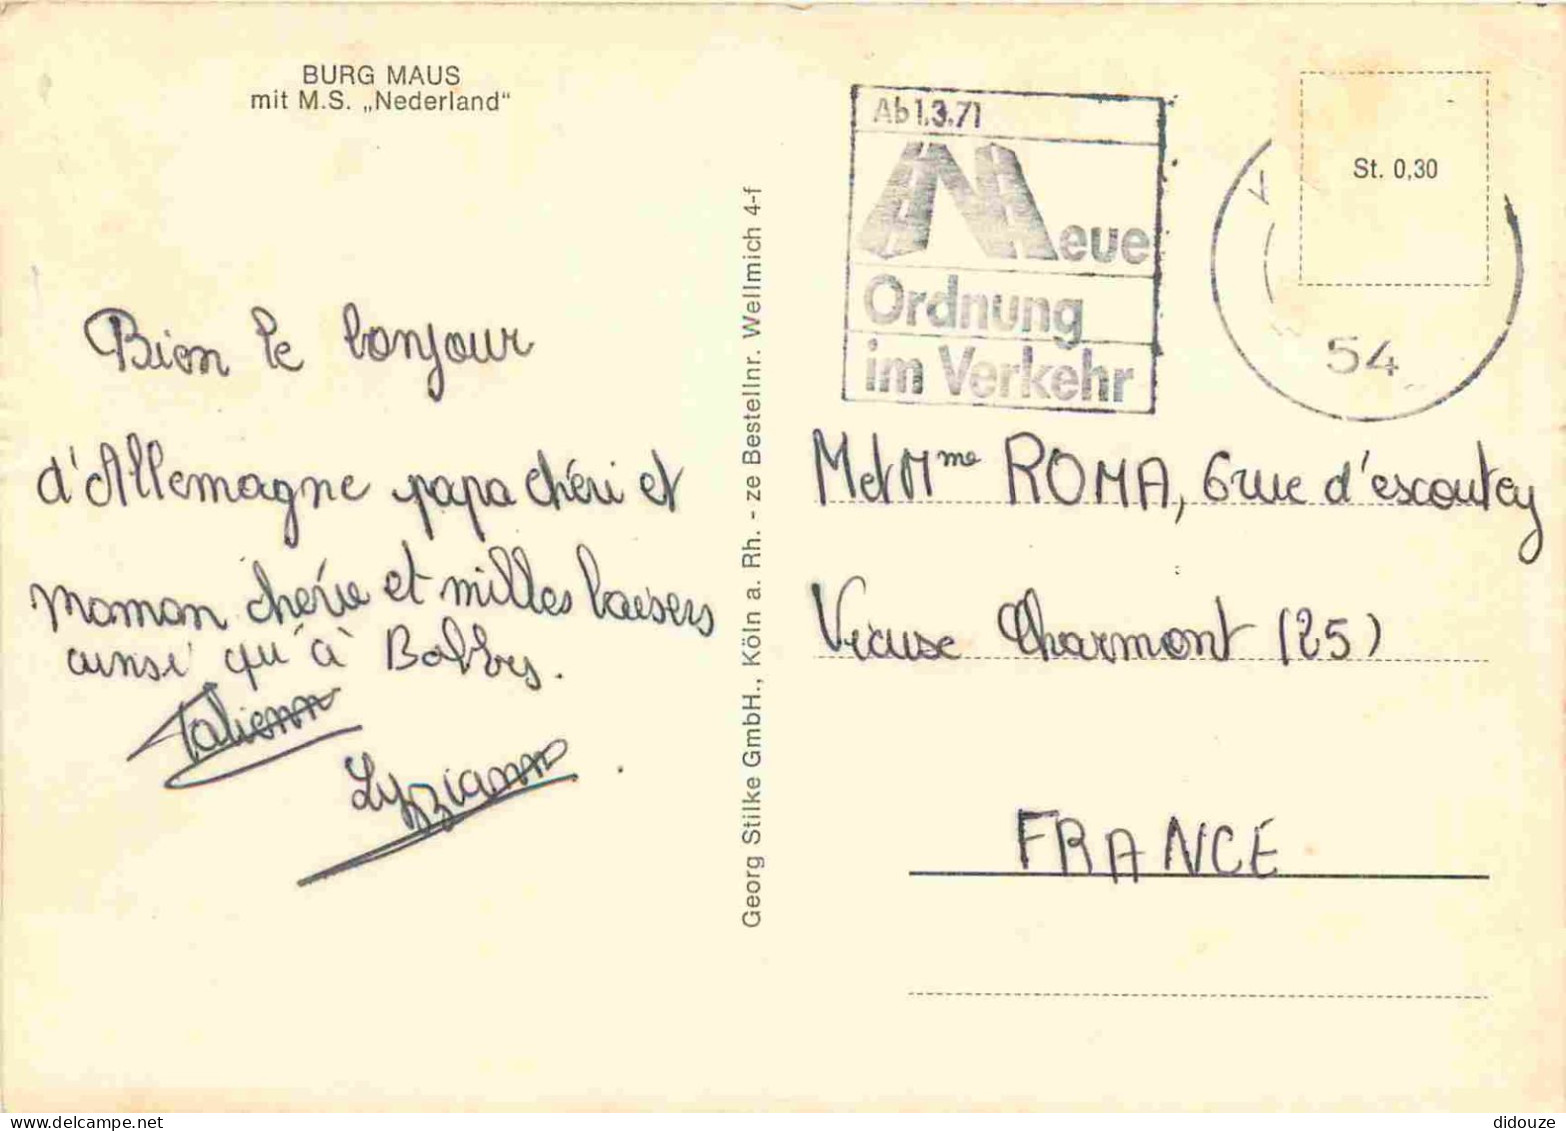 BURG MAUS
mit M.S. „Nederland"
Bien le bonjour
d'Allemagne papa chéri et
maman chérie et milles baisers
ainsi qu'à Bobby.
Lyzziann
Georg Stilke GmbH., Köln a. Rh. - ze Bestellnr. Wellmich 4-f
Ab 1.3.71
Neue
Ordnung
im Verkehr
St. 0,30
54
M et Mme ROMA, 6 rue d'escoutey
Vieux Charmont (25)
FRANCE
didouze